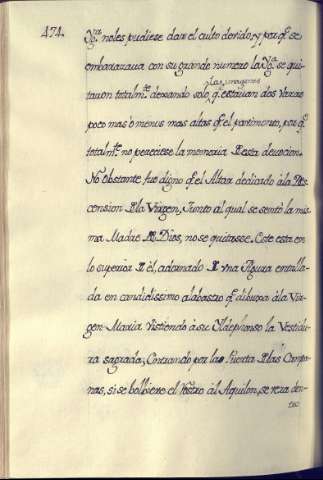 474.
Yg.ª no les pudiese dar el culto devido, y por q.e se
embarazava con su grande numero la Yg.ª se qui-
taron totalm.te dexando solo las imagenes q.e estavan dos varas
poco mas ò menos mas altas q.e el pavimento, por q.e
totalm.te no pereciese la memoria D esta devocion.
No obstante fue digno q.e el Altar dedicado à la As-
cension D la Virgen, Junto al qual se sentò la mis-
ma Madre D Dios, no se quitasse. Este esta en
lo superior D èl, adornado D una Figura entalla-
da en candidissimo alabastro q.e dibuxa à la Vir-
gen Maria vistiendo à su Yldephonso la Vestidu-
ra sagrada; Entrando por la Puerta D las Campa-
nas, si se bolbiere el rostro al Aquilon, se reza den-
tro